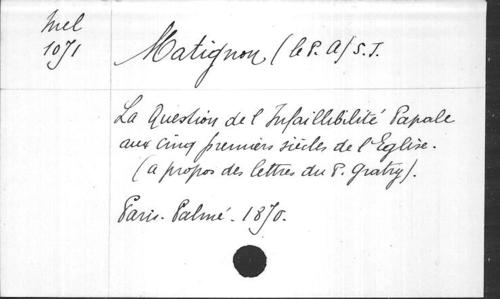 Mel
1071
Matignon (le P. A) S.J.
La Question de l'Infaillibilité Papale
aux cinq premiers siècles de l'Eglise.
(a propos des lettres du P. Gratry).
Paris. Palmé. 1870.